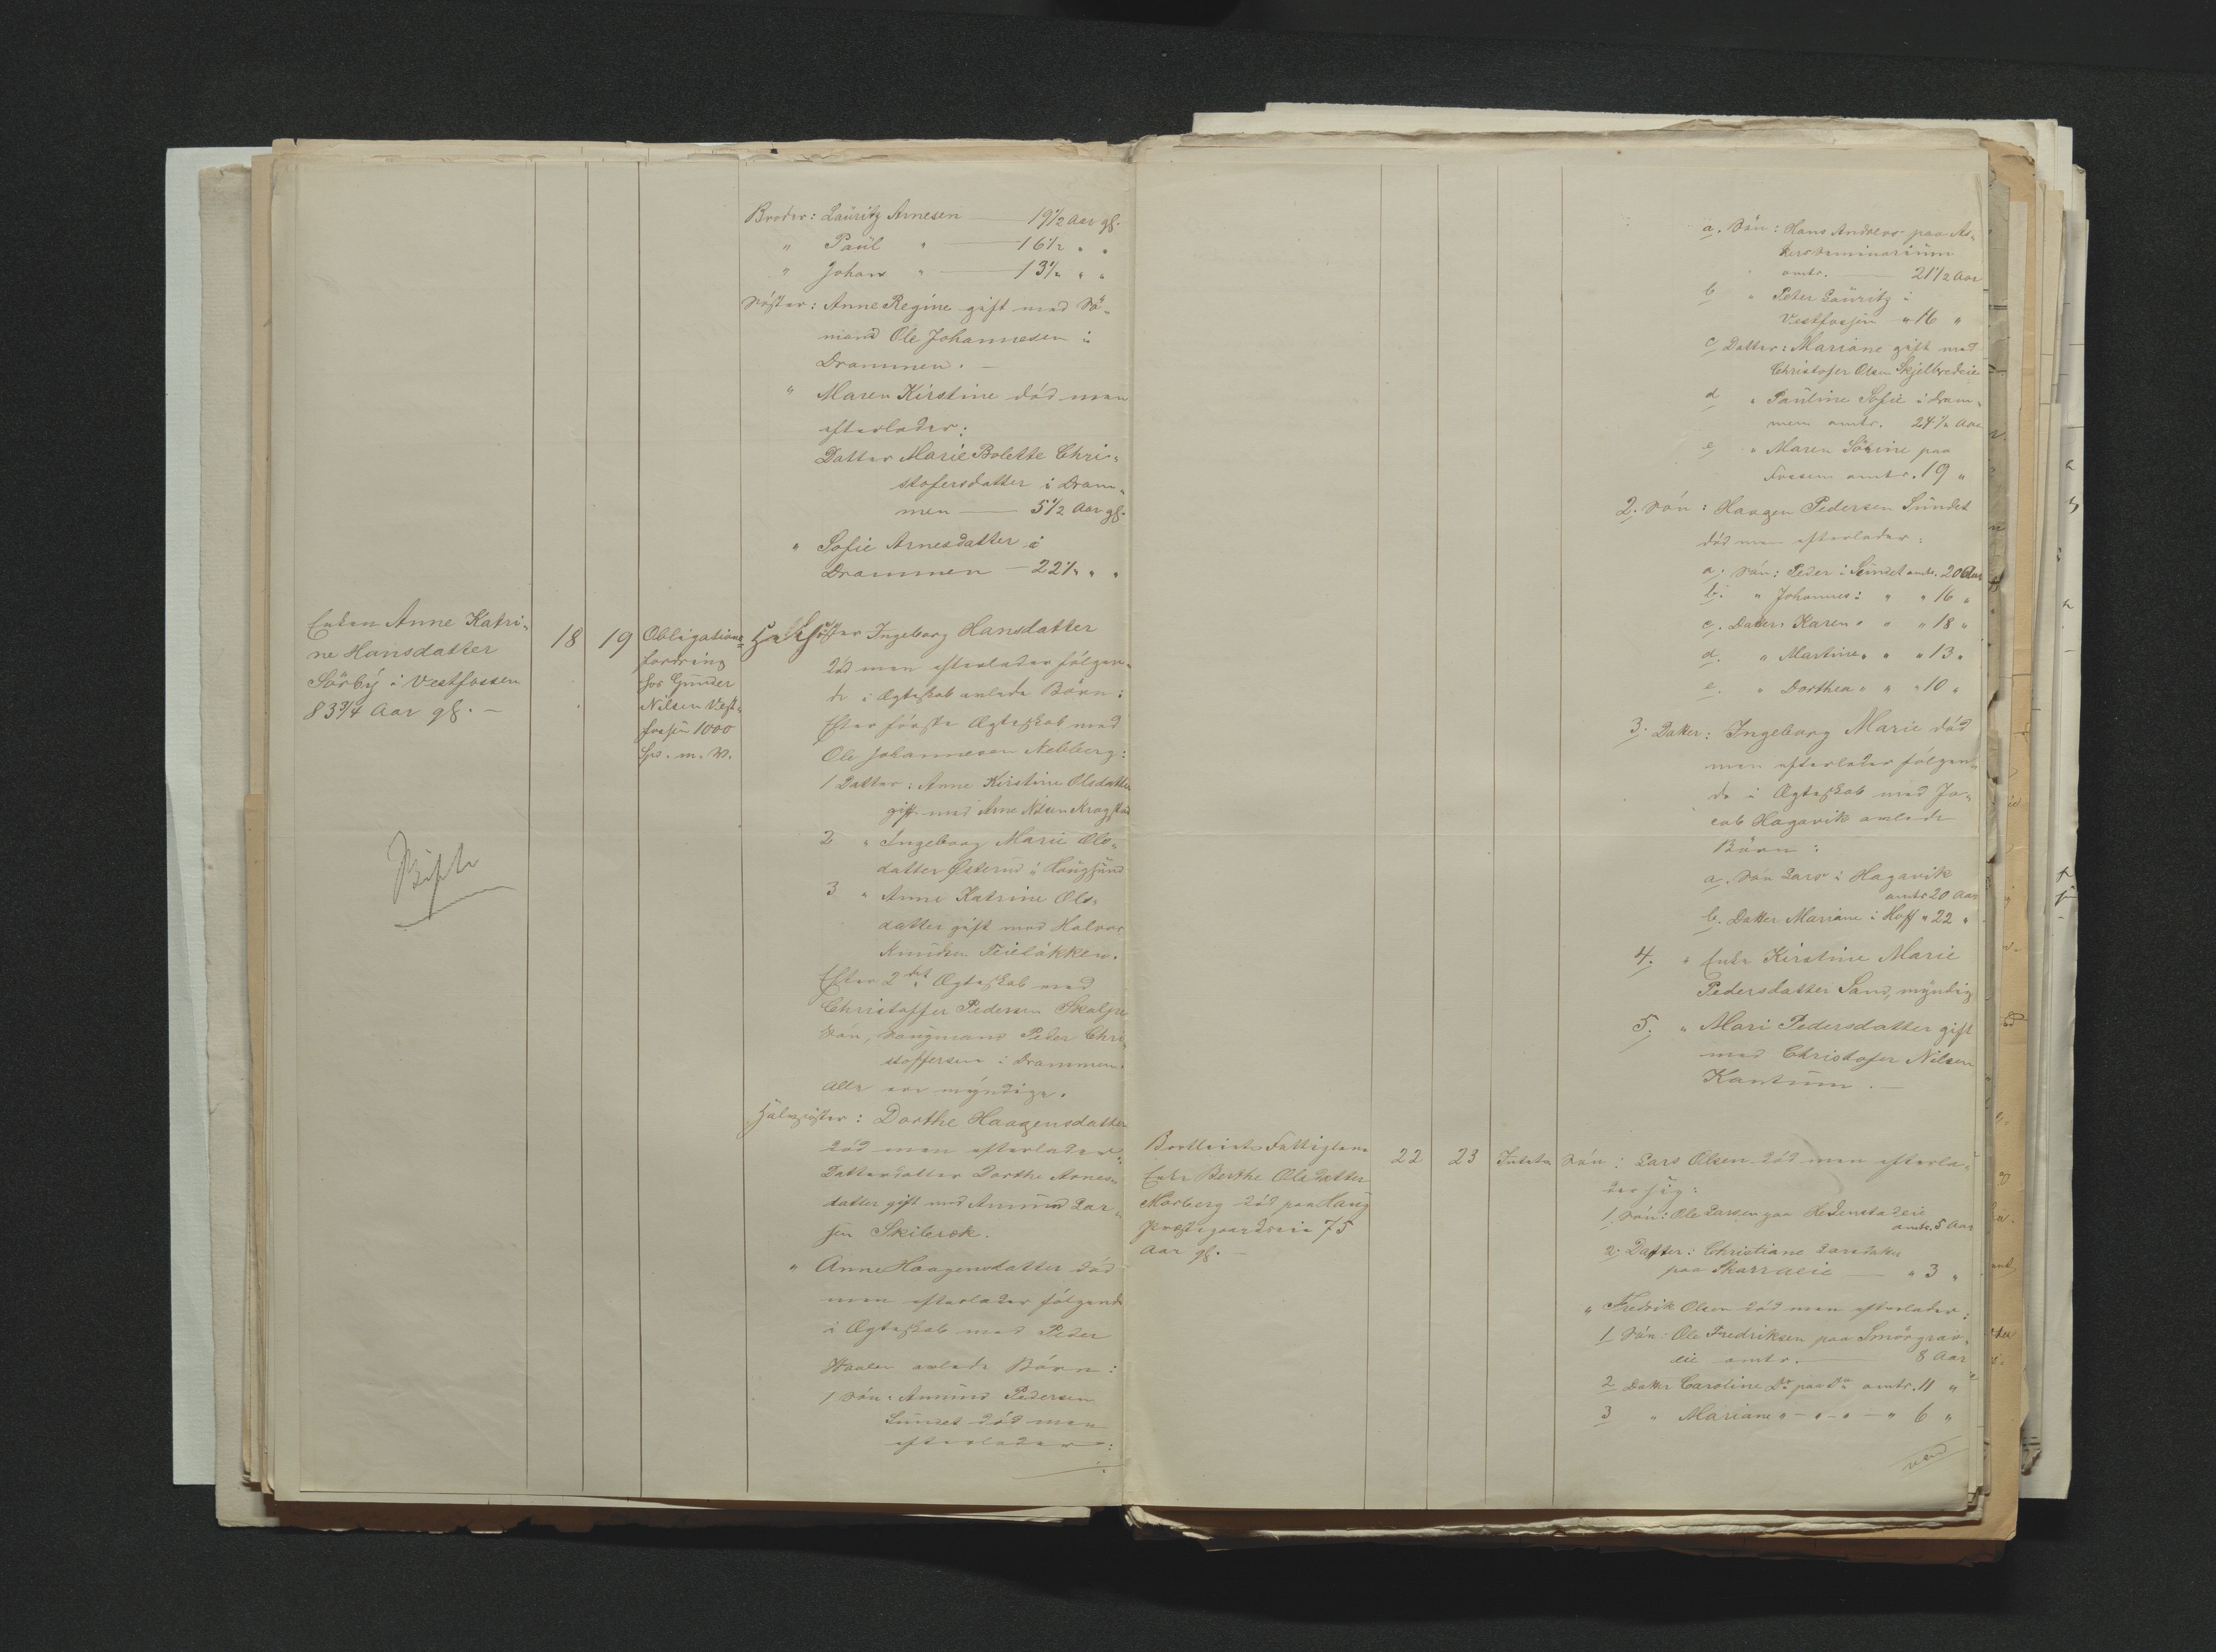 Broder: Lauritz Arnesen — 19 1/2 Aar gl.
" Paul " — 16 1/2 " "
" Johan " — 13 1/2 " "
Söster: Anne Regine gift med Sö-
mand Ole Johannesen i
Drammen. —
" Maren Kirstine död men
efterlader:
Datter Marie Bolette Chri-
stofersdatter i Dram-
men — 5 1/2 Aar gl.
" Sofie Arnesdatter i
Drammen — 22 1/2 " "
Enken Anne Katri-
ne Hansdatter
Sörby i Vestfossen
83 3/4 Aar gl. —
18
19
Obligations
fordring
hos Gunder
Nilsen Vest-
fossen 1000
Spd. m. V.
Halvsöster Ingeborg Hansdatter
död men efterlader fölgen-
de i Ægteskab avlede Börn:
Efter förste Ægteskab med
Ole Johannesen Nebberg:
1 Datter: Anne Kirstine Olsdatter
gift med Arne Nilsen Kragstad
2 " Ingeborg Marie Ols-
datter Österud i Haugsund
3 " Anne Katrine Ols-
datter gift med Halvor
Knudsen Teielökken.
Efter 2det Ægteskab med
Christoffer Pedersen
Sön, Peder Chri-
stoffersen i Drammen.
Alle ere myndige.
Halvsöster: Dorthe Haagensdatter
död men efterlader:
Datterdatter Dorthe Arnes-
datter gift med Amund Lar-
sen Skilerok.
" Anne Haagensdatter död
men efterlader fölgende
i Ægteskab med Peder
avlede Börn:
1 Sön: Amund Pedersen
Sundet död men
efterlader:
a. Sön: Hans Andreas paa As-
kers Seminarium
omtr. — 21 1/2 Aar
b " Peter Lauritz i
Vestfossen " 16 "
c Datter: Mariane gift med
Christofer Olsen Skjelbredeie
d " Pauline Sofie i Dram-
men omtr. 24 1/2 Aar
e " Maren Sörine paa
Fossum omtr. 19 "
2. Sön: Haagen Pedersen Sundet
död men efterlader:
a. Sön: Peder i Sundet omtr. 20 Aar
b. " Johannes i " " 16 "
c. Datter: Karen " " " 18 "
d. " Martine " " " 13 "
e. " Dorthea " " " 10 "
3. Datter: Ingeborg Marie död
men efterlader fölgen-
de i Ægteskab med Ja-
cob Hagavik avlede
Börn:
a. Sön Lars i Hagavik
omtr. 20 Aar
b. Datter Mariane i Hoff " 22 "
4. " Enke Kirstine Marie
Pedersdatter Sand, myndig
5. " Mari Pedersdatter gift
med Christofer Nilsen
Kantum. —
Fattiglem
Enke Berthe Olsdatter
Morberg död paa Haug
Præstegaardseie 75
Aar gl. —
22
23
Intet
Sön: Lars Olsen död men efterla-
der sig:
1. Sön: Ole Larsen paa Hedenstadeie
omtr. 5 Aar
2. Datter: Christiane Larsdatter
paa Skarraeie — " 3 "
" Fredrik Olsen död men efterlader:
1 Sön: Ole Fredriksen paa Smörgrav-
eie omtr. — 8 Aar
2 Datter Caroline Do paa Do omtr. 11 "
3 " Mariane " - " - " - " 6 "